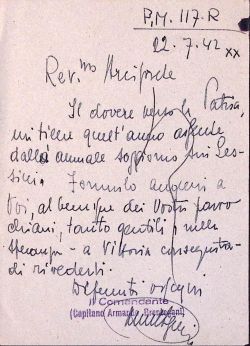 P.M. 117-R
22.7.42 XX
Rev.mo Arciprete
Il dovere verso la Patria,
mi tiene quest'anno assente
dall'annuale soggiorno sui Les-
sini. Formulo auguri a
Voi, al bene dei Vostri parroc
chiani, tanto gentili e nella
speranza - a Vittoria conseguita -
di rivederli.
Il Comandante
(Capitano Armando